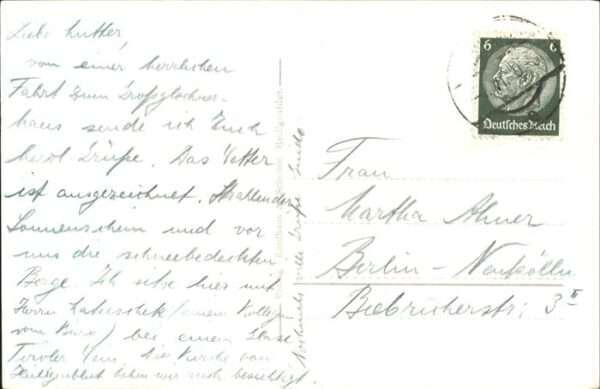 Liebe Mutter,
von einer herrlichen
Fahrt zum Großglockner-
haus sende ich Euch
herzl. Grüße. Das Wetter
ist ausgezeichnet. Strahlender
Sonnenschein und vor
uns die schneebedeckten
Berge. Ich sitze hier mit
Herrn (einem Kollegen
vom Büro) bei einem Glase
Tiroler Die Kirche von
Heiligenblut haben wir auch besichtigt.
Nochmals viele Grüße
6 6
Deutsches Reich
Frau
Martha
Berlin-Neukölln
3 II